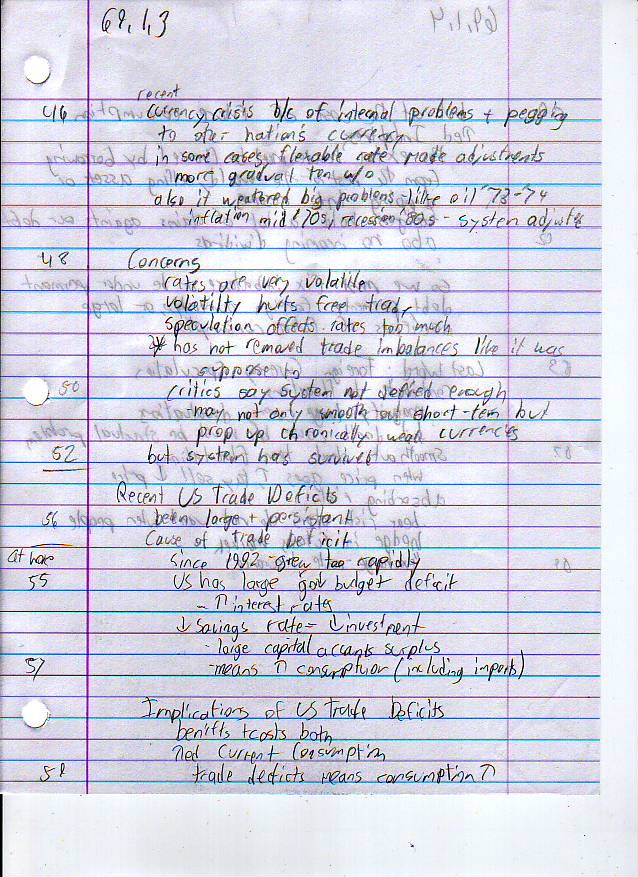 69.1.3
recent
46 currency crisis b/c of internal problems + pegging
to other nation's currency
in some cases, flexable rate made adjustments
more gradual ten w/o
also it weatered big problems like oil '73-74
inflation mid '70s, recession '80s - system adjusts
48 Concerns
rates are very volatile
volatilty hurts free trade
speculation affects rates too much
has not removed trade imbalances like it was
supposent
50 critics say system not defined enough
may not only smooth out short-tem but
prop up chronically weak currencies
52 but system has survived
Recent US Trade Deficits
56 been large + persistant
Cause of trade deficit
at home since 1992 - grew too rapidly
55 US has large gov budget deficit
- ↑ interest rates
↓ savings rate = ↓ investment
- large capital accants surplus
57 -means ↑ consumption (including imports)
Implications of US Trade Deficits
benifts + costs both
↑ed Current Consumption
58 trade deficts means consumption ↑